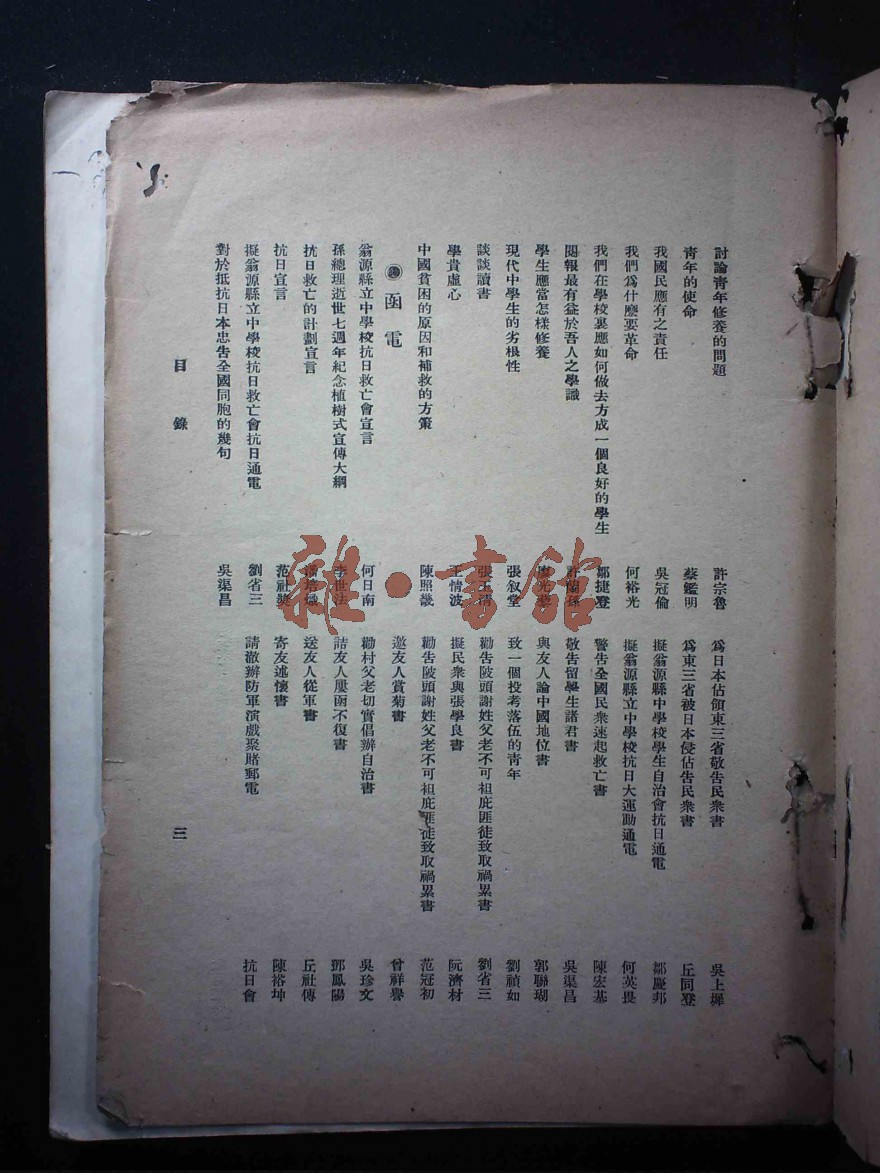 討論靑年修養的問題 許宗魯
靑年的使命 蔡鑑明
我國民應有之責任 吳冠倫
我們爲什麽要革命 何裕光
我們在學校裏應如何做去方成一個良好的學生 鄒捷登
閱報最有益於吾人之學識 許蘭孫
學生應當怎樣修養
現代中學生的劣根性 張叙堂
談談讀書
學貴虛心 王情波
中國貧困的原因和補救的方策 陳照畿
函電
翁源縣立中學校抗日救亡會宣言 何日南
孫總理逝世七週年紀念植樹式宣傳大綱 李世法
抗日救亡的計劃宣言
抗日宣言 范社獎
擬翁源縣立中學校抗日救亡會抗日通電 劉省三
對於抵抗日本忠告全國同胞的幾句 吳渠昌
爲日本佔領東三省敬告民衆書 吳上墀
爲東三省被日本侵佔告民衆書 丘同登
擬翁源縣中學校學生自治會抗日通電 鄒慶邦
擬翁源縣立中學校抗日大運動通電 何英畏
警告全國民衆速起救亡書 陳宏基
敬告留學生諸君書 吳渠昌
與友人論中國地位書 郭聯瑚
致一個投考落伍的靑年 劉禎如
勸告陂頭謝姓父老不可袒庇匪徒致取禍累書 劉省三
擬民衆與張學良書 阮濟材
勸告陂頭謝姓父老不可袒庇匪徒致取禍累書 范冠初
邀友人賞菊書 曾祥譽
勸村父老切實倡辦自治書 吳珍文
詰友人屢函不復書 鄧鳳陽
送友人從軍書 丘社傳
寄友述懷書 陳裕坤
請澈辦防軍演戲聚賭郵電 抗日會
目錄
三
雜·書館